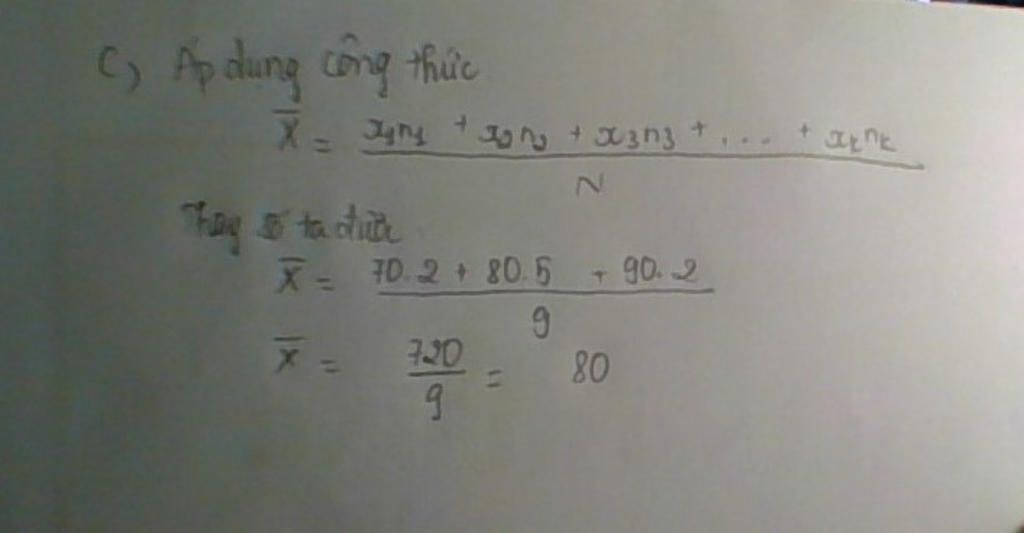 C) Áp dụng công thức
X̄ = x₁n₁ + x₂n₂ + x₃n₃ + ... + xₖnₖ
N
Thay số ta được
X̄ = 70.2 + 80.5 + 90.2
9
X̄ = 720/9 = 80